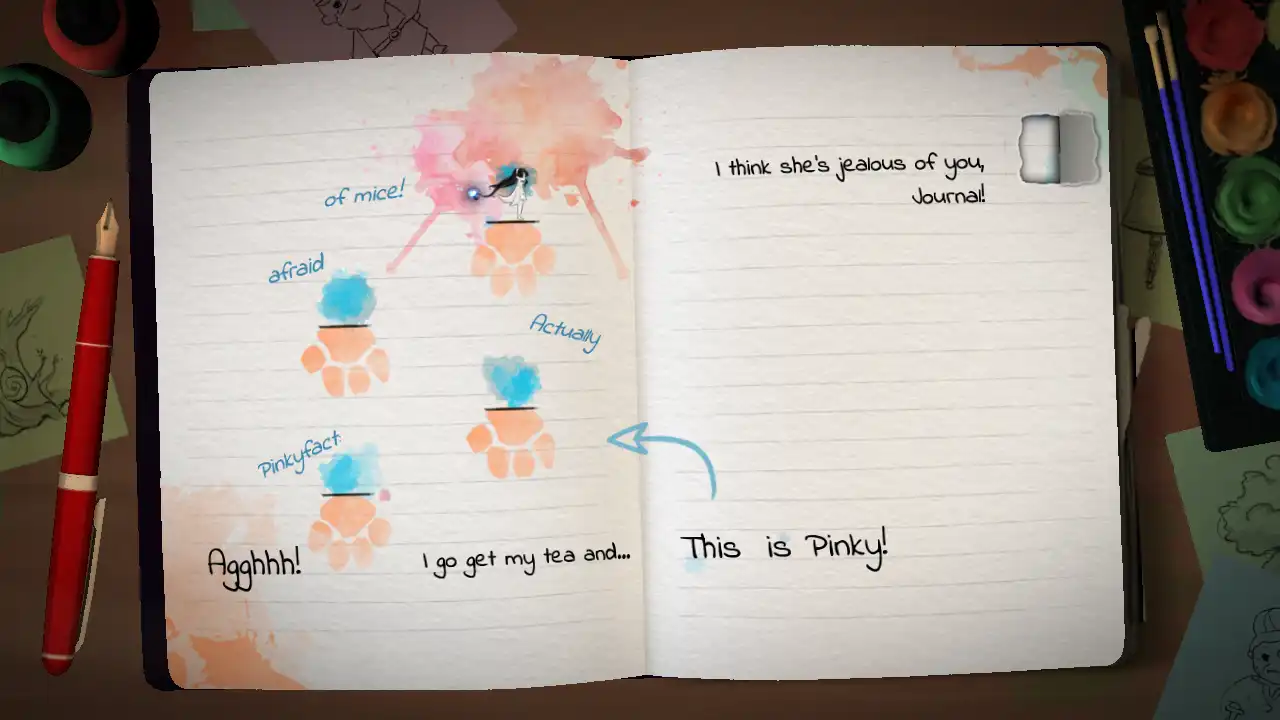 of mice!
afraid
Actually
Pinkyfact:
Agghhh!
I go get my tea and...
I think she's jealous of you,
Journal!
This is Pinky!